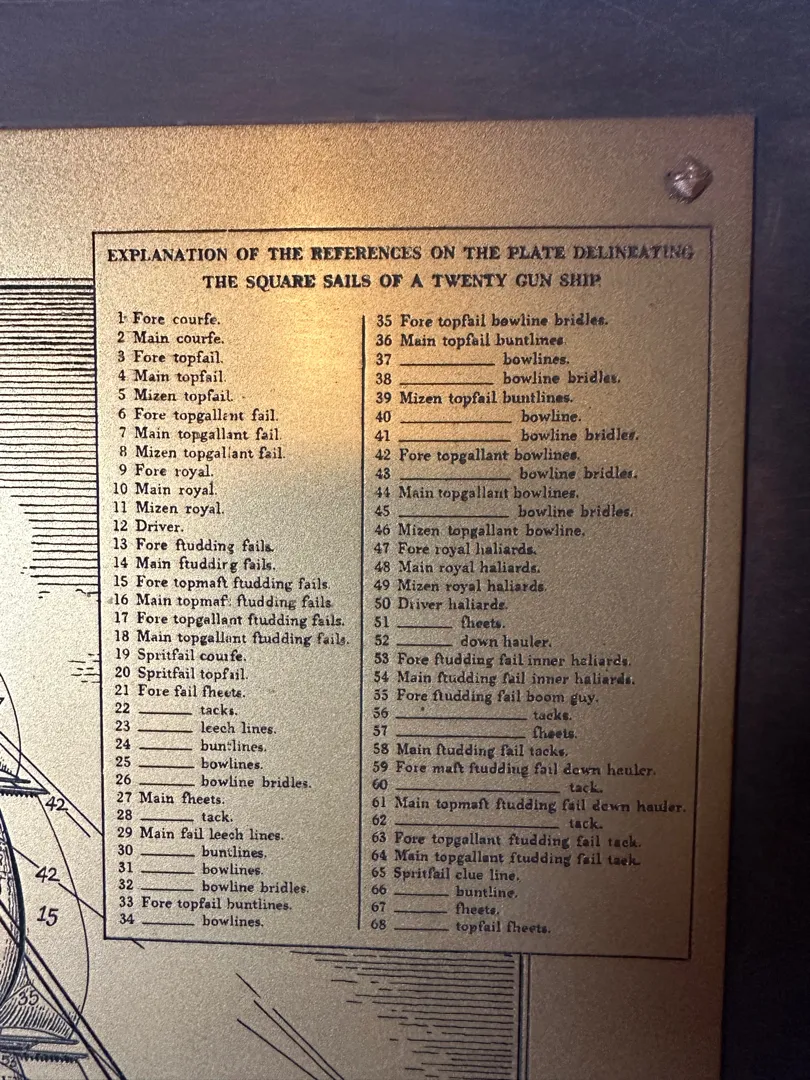 EXPLANATION OF THE REFERENCES ON THE PLATE DELINEATING
THE SQUARE SAILS OF A TWENTY GUN SHIP
1 Fore courſe.
2 Main courſe.
3 Fore topſail.
4 Main topſail.
5 Mizen topſail.
6 Fore topgallant ſail.
7 Main topgallant ſail.
8 Mizen topgallant ſail.
9 Fore royal.
10 Main royal.
11 Mizen royal.
12 Driver.
13 Fore ſtudding ſails.
14 Main ſtudding ſails.
15 Fore topmaſt ſtudding ſails.
16 Main topmaſt ſtudding ſails.
17 Fore topgallant ſtudding ſails.
18 Main topgallant ſtudding ſails.
19 Spritſail courſe.
20 Spritſail topſail.
21 Fore ſail ſheets.
22 ______ tacks.
23 ______ leech lines.
24 ______ buntlines.
25 ______ bowlines.
26 ______ bowline bridles.
27 Main ſheets.
28 ______ tack.
29 Main ſail leech lines.
30 ______ buntlines.
31 ______ bowlines.
32 ______ bowline bridles.
33 Fore topſail buntlines.
34 ______ bowlines.
35 Fore topſail bowline bridles.
36 Main topſail buntlines
37 __________ bowlines.
38 __________ bowline bridles.
39 Mizen topſail buntlines.
40 ____________ bowline.
41 ____________ bowline bridles.
42 Fore topgallant bowlines.
43 ____________ bowline bridles.
44 Main topgallant bowlines.
45 ____________ bowline bridles.
46 Mizen topgallant bowline.
47 Fore royal haliards.
48 Main royal haliards.
49 Mizen royal haliards.
50 Driver haliards.
51 ______ ſheets.
52 ______ down hauler.
53 Fore ſtudding ſail inner haliards.
54 Main ſtudding ſail inner haliards.
55 Fore ſtudding ſail boom guy.
56 ______________ tacks.
57 ______________ ſheets.
58 Main ſtudding ſail tacks.
59 Fore maſt ſtudding ſail down hauler.
60 __________________ tack.
61 Main topmaſt ſtudding ſail down hauler.
62 __________________ tack.
63 Fore topgallant ſtudding ſail tack.
64 Main topgallant ſtudding ſail tack.
65 Spritſail clue line.
66 ______ buntline.
67 ______ ſheets.
68 ______ topſail ſheets.
42
42
15
35